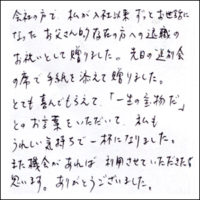 会社の方で、私が入社以来ずっとお世話に
なった お父さん的存在の方への退職の
お祝いとして贈りました。先日の送別会
の席で手紙を添えて贈りました。
とても喜んでもらえて、「一生の宝物だ」
とのお言葉をいただいて、私も
うれしい気持ちで一杯になりました。
また機会があれば 利用させていただきたいと
思います。ありがとうございました。